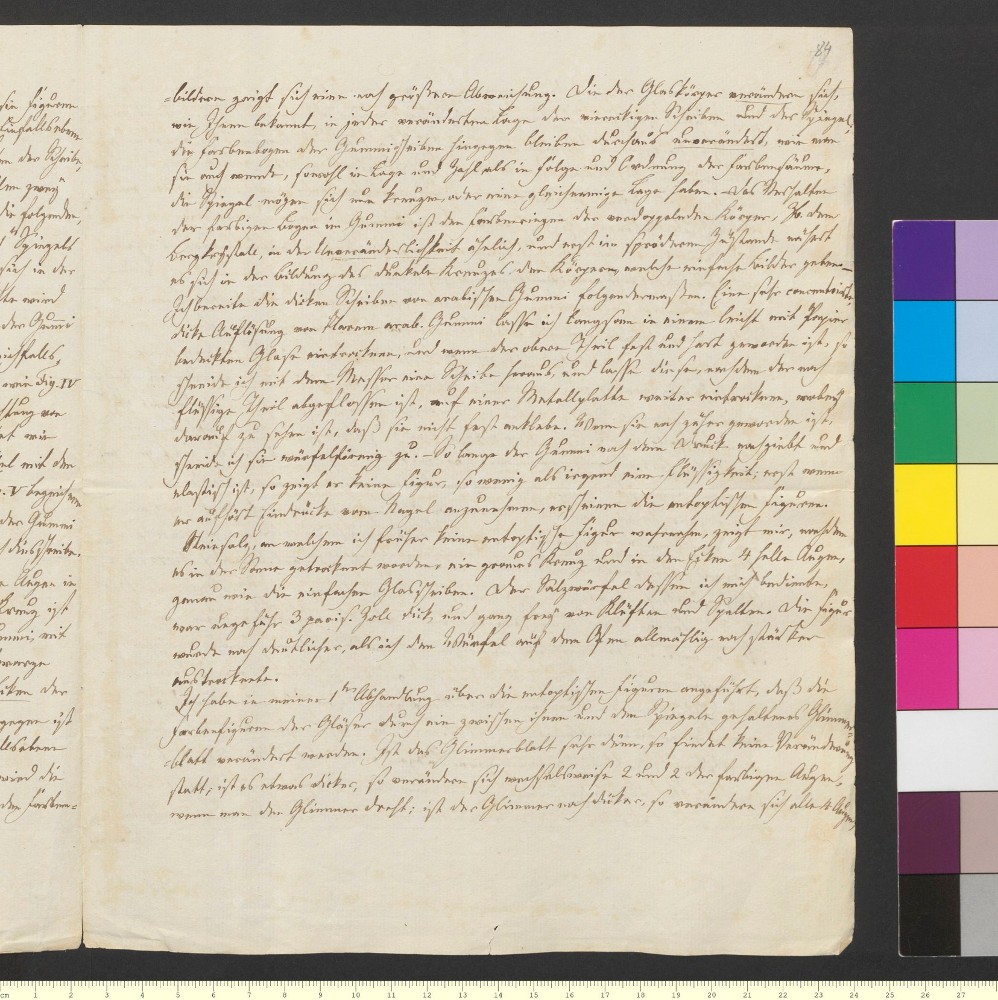 84
sie Figuren
Einfallsebene
der Scheibe,
die folgenden,
Spiegels
sich in der
wird
der Gum̄i
wie Fig. IV
mit den
V bezeichnen
der Gum̄i
Augen in
Kreuz ist
mit
gegen ist
wird die
den Farben-
-bildern zeigt sich eine noch größere Abweichung. Die der Glaskörper verändern sich,
wie Ihnen bekannt, in jeder veränderten Lage der viereckigen Scheiben und der Spiegel,
die Farbenbogen der Gummischeiben hingegen bleiben durchaus unverändert, wie man
sie auch wende, sowohl in Lage und Zahl als in Folge und Ordnung der Farbensäume,
die Spiegel mögen sich nun kreuzen, oder eine gleichnamige Lage haben. – Das Verhalten
der farbigen Bogen im Gummi ist den Farbenringen der verdoppelnden Körper, z. B. dem
Bergkrystall, in der Unveränderlichkeit ähnlich, und erst im spröderen Zustande nähert
es sich in der Bildung des dunkeln Kreuzes den Körpern, welche einfache Bilder geben. –
Ich bereite die dicken Scheiben von arabischen Gummi folgendermaßen. Eine sehr concentrirte
dicke Auflösung von klarem arab. Gummi lasse ich langsam in einem leicht mit Papier
bedeckten Glase eintrocknen, und wenn der obere Theil fest und hart geworden ist, so
schneide ich mit dem Messer eine Scheibe heraus, und lasse diese, nachdem der noch
flüssige Theil abgeflossen ist, auf einer Metallplatte weiter eintrocknen, wobey
darauf zu sehen ist, daß sie nicht fest anklebe. Wenn sie noch zäher geworden ist,
schneide ich sie würfelförmig zu. – So lange der Gummi noch dem Druck nachgiebt und
elastisch ist, so zeigt er keine Figur, so wenig als irgend eine Flüssigkeit; erst wenn
er aufhört Eindrücke vom Nagel anzunehmen, erscheinen die entoptischen Figuren.
Steinsalz, an welchem ich früher keine entoptische Figur wahrnahm, zeigt mir, nachdem
es in der Sonne getrocknet worden, ein graues Kreuz und in den Ecken 4 helle Augen,
genau wie die einfachen Glasscheiben. Der Salzwürfel dessen ich mich bediente,
war ungefähr 3 paris. Zoll dick, und ganz frey von Klüften und Spalten. Die Figur
wurde noch deutlicher, als ich den Würfel auf dem Ofen allmählig noch stärker
austrocknete.
Ich habe in meiner 1ten Abhandlung über die entoptischen Figuren angeführt, daß die
Farbenfiguren der Gläser durch ein zwischen ihnen und dem Spiegeln gehaltenes Glimmer-
-blatt verändert werden. Ist das Glimmerblatt sehr dünn, so findet keine Veränderung
statt, ist es etwas dicker, so verändern sich wechselsweise 2 und 2 der farbigen Augen,
wenn man den Glimmer dreht; ist der Glimmer noch dicker, so verändern sich alle 4 Augen,